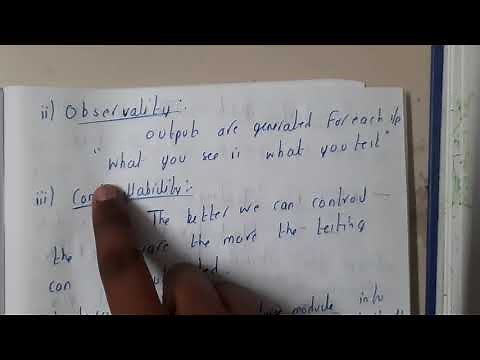 ii) Observality:-
output are generated For each i/p
"What you see is what you test"
iii) Con llability:-
The better we can control
the are the more the testing
can ted.
module into